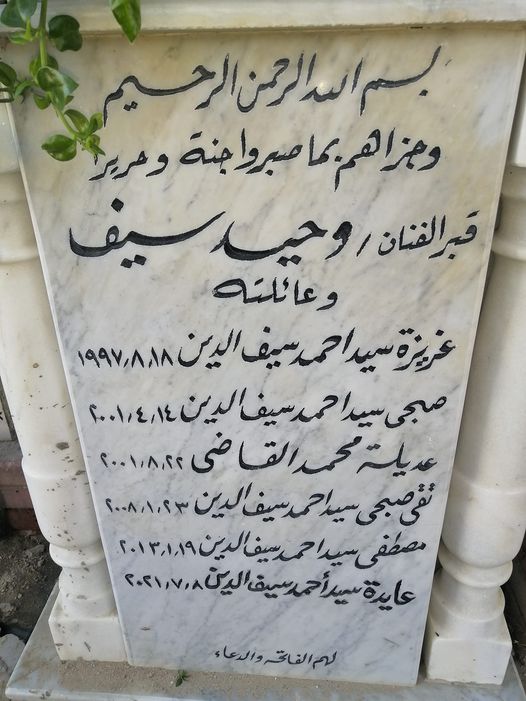 بسم الله الرحمن الرحيم
وجزاهم بما صبروا جنة وحريرا
قبر الفنان / وحيد سيف
وعائلته
عزيزة سيد احمد سيف الدين ١٩٩٧/٨/١٨
صبحى سيد احمد سيف الدين ٢٠٠١/٤/١٤
عديلة محمد القاضى ٢٠٠١/٨/٢٢
تقى صبحى سيد احمد سيف الدين ٢٠٠٨/١/٢٣
مصطفى سيد احمد سيف الدين ٢٠١٣/١/١٩
عايدة سيد أحمد سيف الدين ٢٠٢١/٧/٨
لهم الفاتحة والدعاء